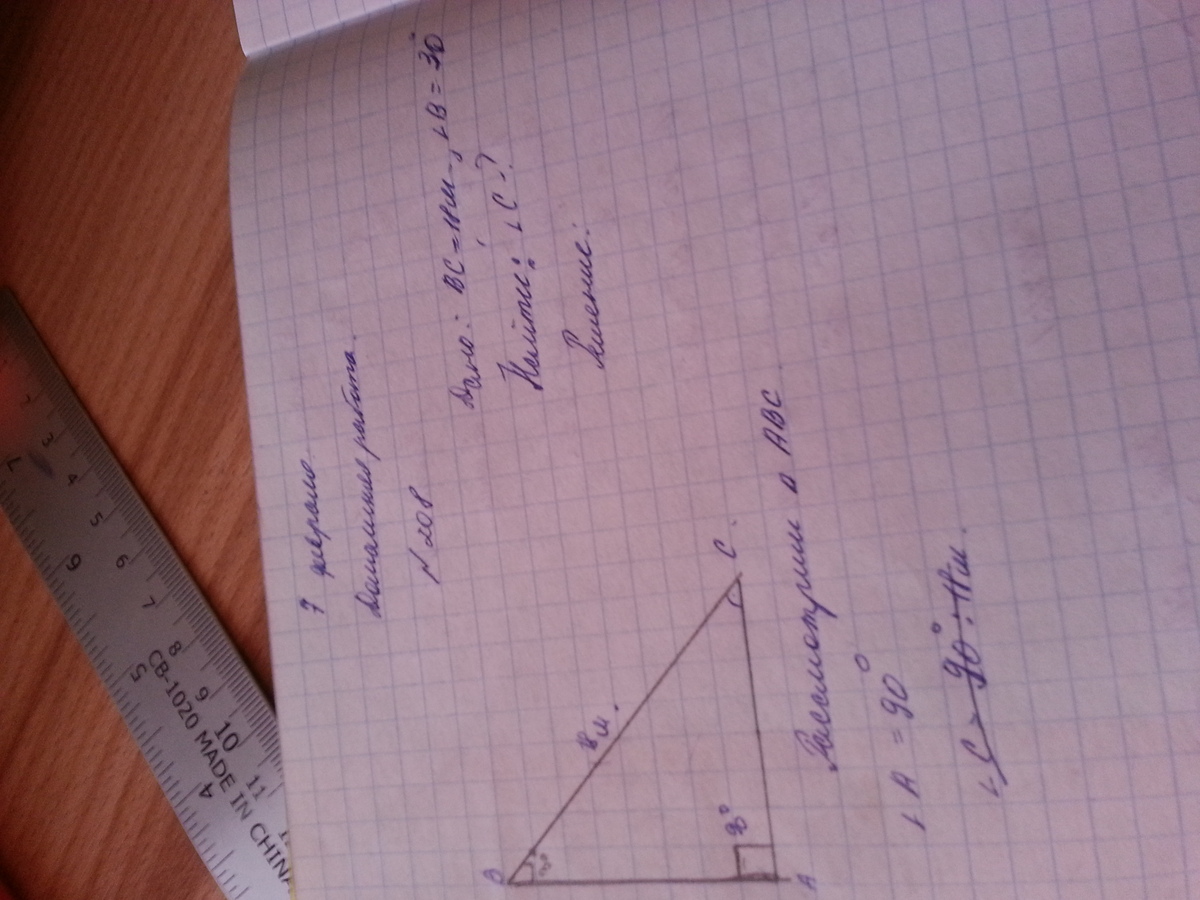 7 февраля.
Домашняя работа.
N 208
Дано: BC = 18см, ∟B = 30°
Найти: ∟C - ?
Решение:
B
30°
18см.
C.
90°
A
Рассмотрим Δ ABC
∟A = 90°
∟C = 90° : 18см.
CB-1020 MADE IN CHINA
1
3
4
5
6
7
8
9
10
11
6
5
4